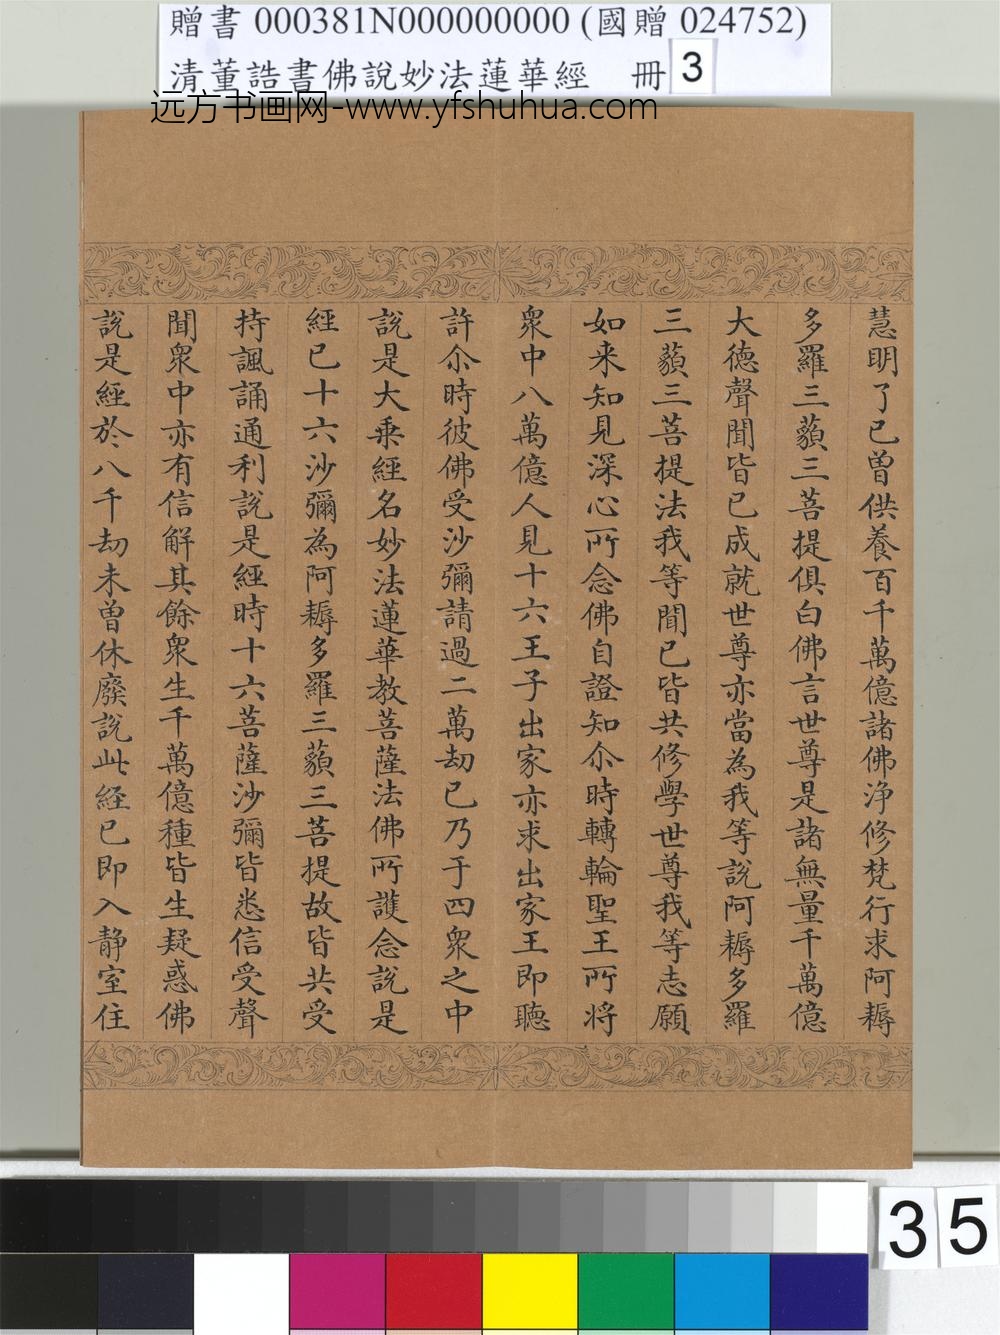 贈書 000381N000000000 (國贈 024752)
清董誥書佛說妙法蓮華經 冊 3
远方书画网-www.yfshuhua.com
慧明了已曾供養百千萬億諸佛淨修梵行求阿耨
多羅三藐三菩提俱白佛言世尊是諸無量千萬億
大德聲聞皆已成就世尊亦當為我等說阿耨多羅
三藐三菩提法我等聞已皆共修學世尊我等志願
如来知見深心所念佛自證知尒時轉輪聖王所將
衆中八萬億人見十六王子出家亦求出家王即聽
許尒時彼佛受沙彌請過二萬劫已乃于四衆之中
說是大乗經名妙法蓮華教菩薩法佛所護念說是
經已十六沙彌為阿耨多羅三藐三菩提故皆共受
持諷誦通利說是經時十六菩薩沙彌皆悉信受聲
聞衆中亦有信解其餘衆生千萬億種皆生疑惑佛
說是經於八千劫未曾休廢說此經已即入静室住
35